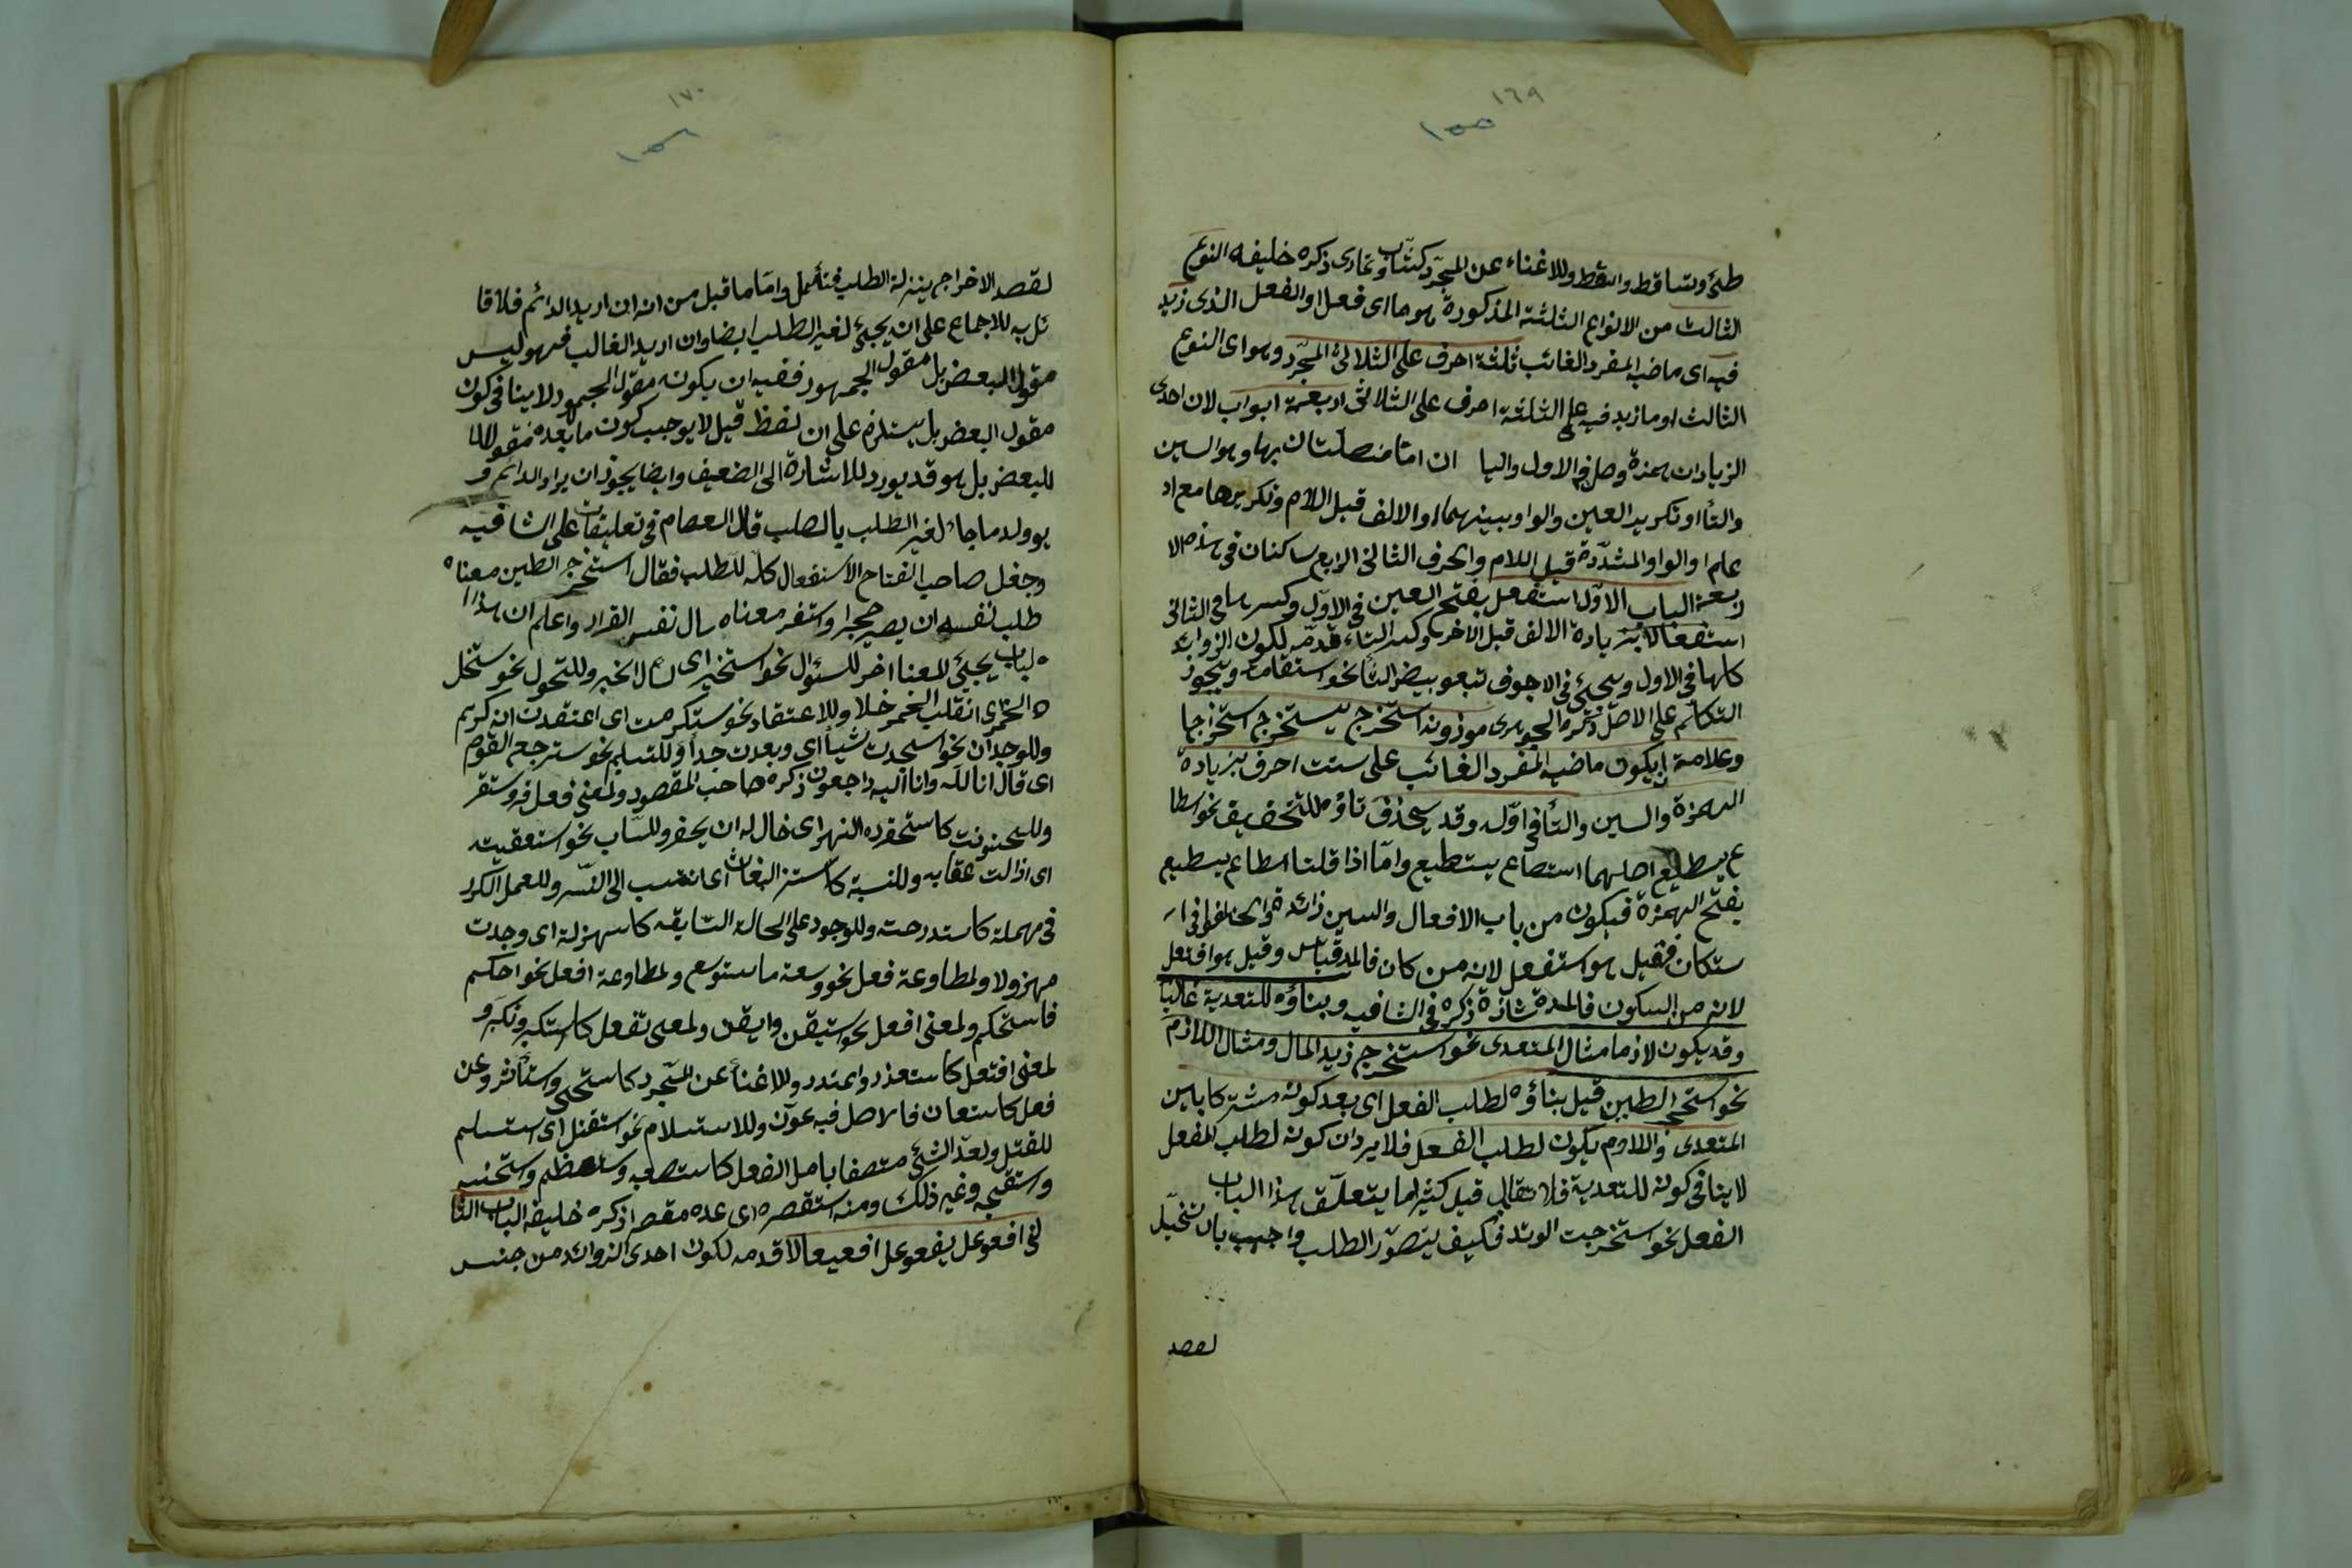 ١٦٩
١٥٥
طئ وتساقط واسّقط وللاغناء عن المجرّد كتثّاوب وتمارى ذكره خليفه النوع
الثالث من الانواع الثلثة المذكورة هو ما اى فعل او الفعل الذى زيد
فيه اى ماضيه المفرد الغائب ثلثة احرف على الثلاثى المجرّد وهو اى النوع
الثالث او ما زيد فيه على الثلثة احرف على الثلاثى اربعة ابواب لان احدى
الزيادات همزة وصل فى الاول والبا ان اما متصلتان بها وهو السين
والتا او تكرير العين والواو بينهما او الالف قبل اللام وتكريرها مع اد
علم او الواو المشدّدة قبل اللام والحرف الثانى الرابع ساكنان فى هذه الا
ربعة الباب الاوّل استفعل يفتح العين فى الاوّل وكسرها فى الثانى
استفعالا بزيادة الالف قبل الآخر وكسر التاء قدمه لكون الزوائد
كلها فى الاول ويجئ فى الاجوف بتعويض التا نحو استقامة ويجوز
التكلم على الاصل ذكره الجوهرى موزونه استخرج يستخرج استخراجا
وعلامته ان يكون ماضيه المفرد الغائب على ستت احرف بزيادة
الهمزة والسين والتا فى اوّله وقد يحذف تاؤه للتخفيف نحو اسطا
ع يسطيع اصلهما استطاع يستطيع وامّا اذا قلنا اسطاع يسطيع
بفتح الهمزة فيكون من باب الافعال والسين زائدة واختلفوا فى ا
ستكان فقيل هو استفعل لانه من كان فالمد قياس وقيل هو افتعل
لانه من السكون فالمدة شاذة ذكره فى الشافيه وبناؤه للتعدية غالبا
وقد يكون لازما مثال المتعدى نحو استخرج زيد المال ومثال اللازم
نحو استحجر الطين قيل بناؤه لطلب الفعل اى بعد كونه مشتركا بين
المتعدى واللازم يكون لطلب الفعل فلا يرد ان كونه لطلب الفعل
لا ينافى كونه للتعدية فلا تقابل قيل كثيرا ما يتعلّق هذا الباب
الفعل نحو استخرجت الوتد فكيف يتصوّر الطلب واجيب بان تخيّل
لقصد
١٧٠
١٥٦
لقصد الاخراج بمنزلة الطلب فتأمّل وامّا ما قيل من انه ان اريد الدائم فلا قا
ئل به للاجماع على ان يجئ لغير الطلب ايضا وان اريد الغالب فهو ليس
مقول البعض بل مقول الجمهور ففيه ان يكون مقول الجمهور لا ينافى كون
مقول البعض بل يستلزم على ان لفظ قيل لا يوجب كون ما بعده مقولا
للبعض بل هو قد يورد للاشارة الى الضعيف وايضا يجوز ان يراد الدائم و
يوولد ما جاء لغير الطلب بالطلب قال العصام فى تعليقات على الشافيه
وجعل صاحب المفتاح الاستفعال كله للطلب فقال استحجر الطين معناه
طلب نفسه ان يصير حجرا واستقر معناه سال نفس القرار واعلم ان هذا ا
لباب يجئ لمعنا اخر للسئوال نحو استخير اى سال الخبر وللتحول نحو استخل
الخمر اى انقلب الخمر خلا وللاعتقاد نحو استكرمت اى اعتقدت انه كريم
وللوجدان نحو استجدت شيئا اى وجدت جيدا وللتسليم نحو استرجعه القوم
اى قال انا لله وانا اليه راجعون ذكره صاحب المقصود ولمعنى فعل قر واستقر
وللحينونت كاستحفره النهر اى حال له ان يحفر وللساب نحو استعقبت
اى ازالت عقابه وللنسبة كاستنسر البغاث اى انتسب الى النسر وللعمل الكرار
فى مهملة كاستدرجت وللوجود على الحالة السابقه كاسهزلة اى وجدت
مهزولا ولمطاوعة فعل نحو وسعته فاستوسع ولمطاوعة افعل نحو احكم
فاستحكم ولمعنى افعل نحو استيقن وايقن ولمعنى تفعل كاستكبر وتكبر و
لمعنى افتعل كاستعذر واعتذر وللاغناء عن المجرد كاستحى واستأثر وعن
فعل كاستعان فالاصل فيه عوّن وللاستسلام نحو استقتل اى استسلم
للقتل ولعدّ الشئ متصفا باصل الفعل كاستصعبه واستعظم واستحسنه
واستقبحه وغير ذلك ومنه استقصره اى عده مقصرا ذكره خليفة الباب الثا
نى افعوعل يفعوعل افعيعالا قدمه لكون احدى الزوائد من جنس